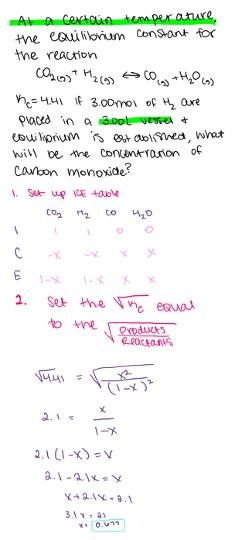 At a certain temperature,
the equilibrium constant for
the reaction
CO₂(g) + H₂(g) ⇔ CO(g) + H₂O(g)
Kc = 4.41 If 3.00mol of H₂ are
placed in a 3.00L vessel +
equilibrium is established, what
will be the concentration of
Carbon monoxide?
1. Set up ICE table
CO₂ H₂ CO H₂O
I 1 1 0 0
C -X -X X X
E 1-X 1-X X X
2. Set the √Kc equal
to the √(Products/Reactants)
√4.41 = √(X²/(1-X)²)
2.1 = X/(1-X)
2.1(1-X) = X
2.1-2.1X = X
X+2.1X = 2.1
3.1X = 2.1
X = 0.677